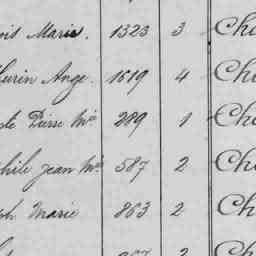 ois Marie. 1323 3 Cha
thurin Ange. 1619 4 Cha
ste Pierre Mie 289 1 Cha
phile Jean Mie 587 2 Cha
ph Marie 863 2 Ch
2 C